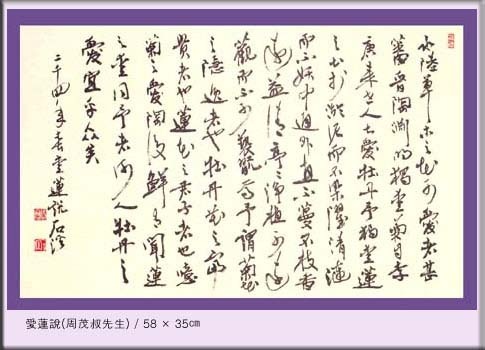 水陸草木之花可愛者甚
蕃晉陶淵明獨愛菊自李
唐來世人甚愛牡丹予獨愛蓮
之出於淤泥而不染濯清漣
而不妖中通外直不蔓不枝香
遠益清亭亭淨植可遠
觀而不可褻翫焉予謂菊花
之隱逸者也牡丹花之富
貴者也蓮花之君子者也噫
菊之愛陶後鮮有聞蓮
之愛同予者何人牡丹之
愛宜乎衆矣
二千四年春愛蓮說石
愛蓮說(周茂叔先生) / 58 × 35㎝